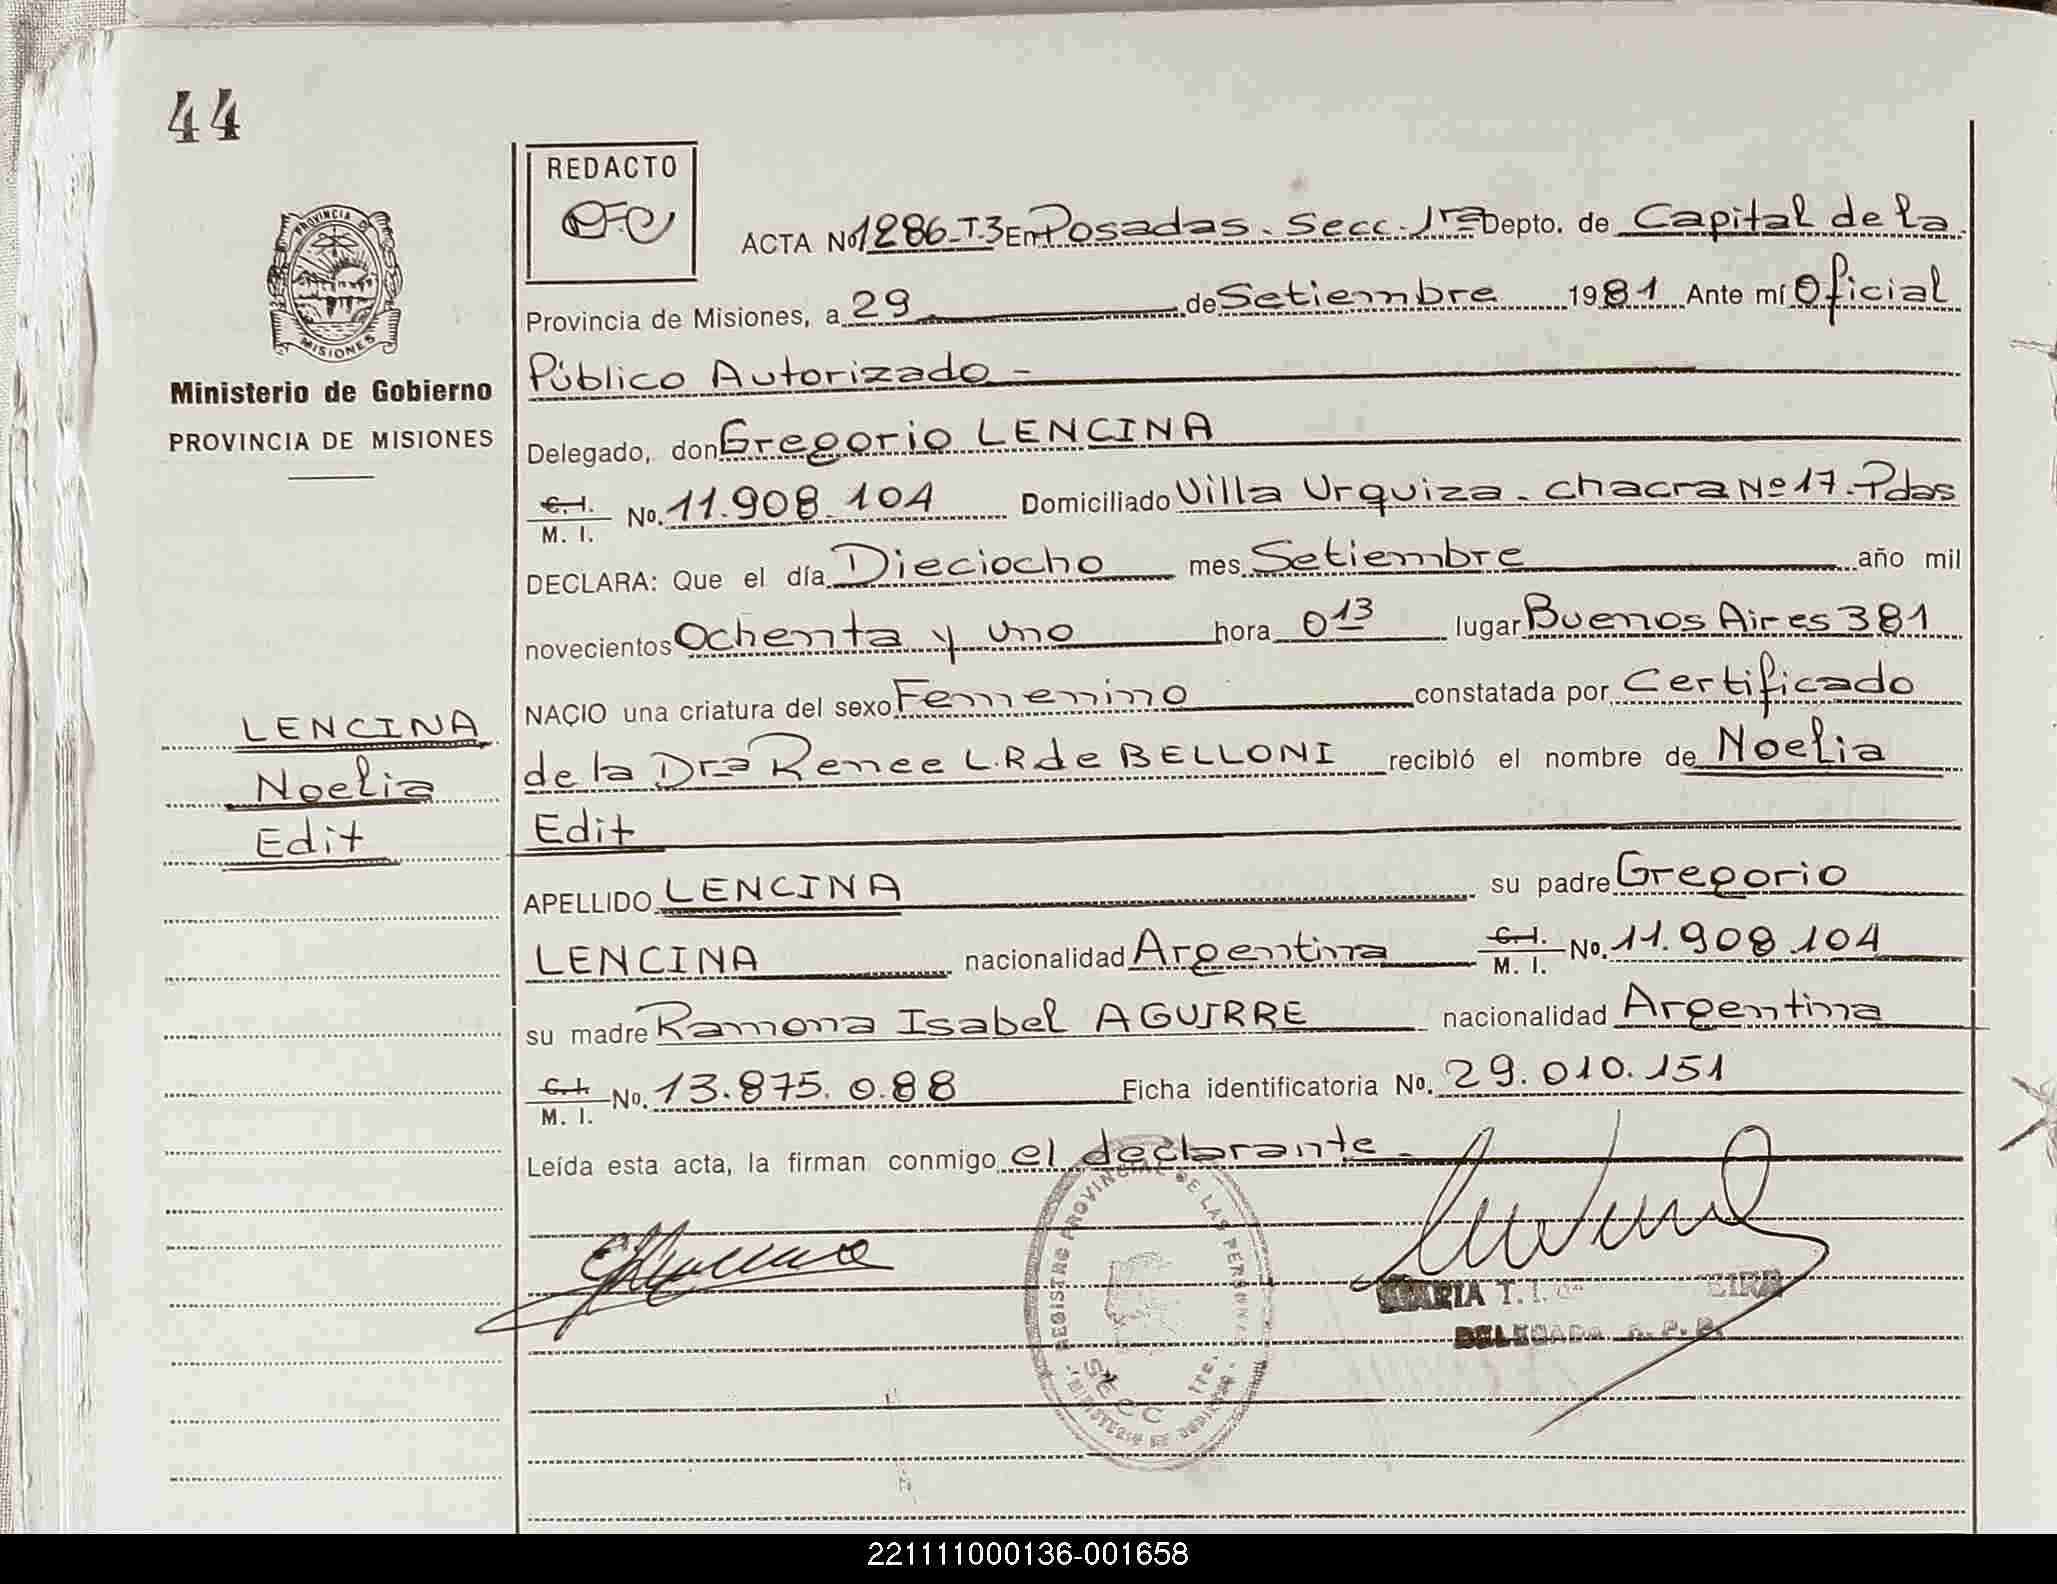 44
REDACTO
PROVINCIA DE
MISIONES
Ministerio de Gobierno
PROVINCIA DE MISIONES
ACTA No 1286-T.3 En Posadas. Secc. 1ra Depto. de Capital de la
Provincia de Misiones, a 29 de Setiembre 1981 Ante mí Oficial
Público Autorizado -
Delegado, don Gregorio LENCINA
C.I. M. I. No. 11.908.104 Domiciliado Villa Urquiza. chacra Nº 17. Pdas
DECLARA: Que el día Dieciocho mes Setiembre año mil
novecientos Ochenta y uno hora 0 13 lugar Buenos Aires 381
NACIO una criatura del sexo Femenino constatada por Certificado
de la Dra Renee L.R de BELLONI recibió el nombre de Noelia
Edit
LENCINA
Noelia
Edit
APELLIDO LENCINA su padre Gregorio
LENCINA nacionalidad Argentina C.I. M. I. No. 11.908.104
su madre Ramona Isabel AGUIRRE nacionalidad Argentina
C.I. M. I. No. 13.875.088 Ficha identificatoria No. 29.010.151
Leída esta acta, la firman conmigo el declarante -
REGISTRO PROVINCIAL DE LAS PERSONAS
Secc 1ra.
MINISTERIO DE GOBIERNO
MARIA T.
DELEGADA R. P. P.
221111000136-001658